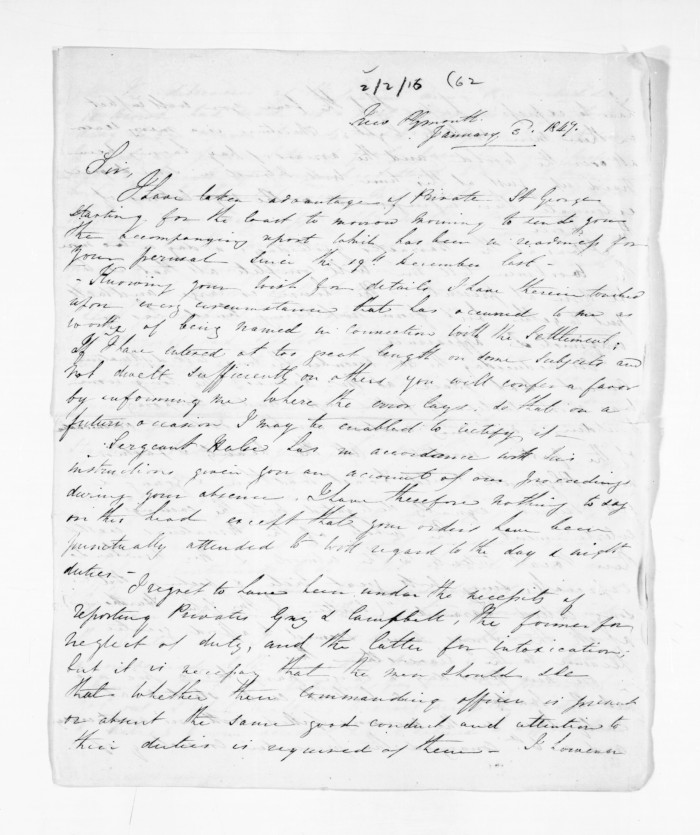 2/2/16 (62
New Plymouth
January 6. 1847.
Sir,
I have taken advantage of Private St George
starting for the coast to morrow morning to send you
the accompanying report which has been in readiness for
your perusal since the 19th December last -
- Knowing your wish for details, I have therein touched
upon every circumstance that has occurred to me as
worthy of being named in connection with the Settlement;
If I have entered at too great length on some subjects and
not dwelt sufficiently on others you will confer a favor
by informing me where the error lays, so that on a
future occasion I may be enabled to rectify it -
Sergeant has in accordance with his
instructions given you an account of our proceedings
during your absence. I have therefore nothing to say
on this head except that your orders have been
punctually attended to with regard to the day & night
duties -
I regret to have been under the necessity of
reporting Privates Gray & Campbell, the former for
neglect of duty, and the latter for intoxication;
but it is necessary that the men should see
that whether their Commanding officer is present
or absent the same good conduct and attention to
their duties is required of them - I however